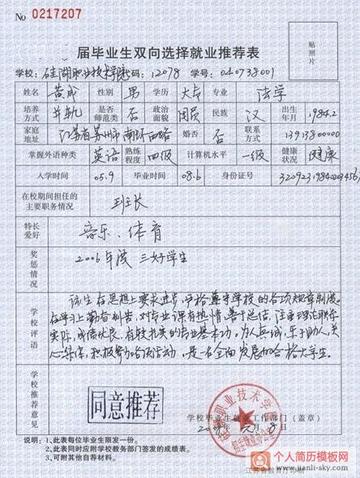 No 0217207
贴照片
届毕业生双向选择就业推荐表
学校：硅湖职业技术学院 代码：12078 学号：040738001
姓名 黄成 性别 男 学历 大专 专业 法学
培养方式 并轨 是否师范类 否 政治面貌 团员 民族 汉 出生年月 1984.2
家庭地址 江苏省苏州市 婚否 否 联系方式 1391380000
掌握外语种类 英语 熟练程度 四级 计算机水平 一级 健康状况 健康
入学时间 05.9 毕业时间 08.6 身份证号
在校期间担任的主要职务情况 班长
特长爱好 音乐、体育
奖惩情况 2006年度 三好学生
学校评语
该生在思想上要求进步，严格遵守学校的各项规章制度，
在学习上勤奋刻苦，对专业课有热情，善于总结，注重理论联系
实际，成绩优良，有较扎实的专业基本功，为人真诚，乐于助人，关
心集体，积极参加各项活动，是一名全面发展的合格大学生。
学校推荐意见
同意推荐
学校毕业生就业工作部门（盖章）
注：1、此表每位毕业生限发一份。
2、此表同时应附学校教务部门签发的成绩表。
3、可附其他自荐材料。
个人简历模板网
www.jianli-sky.com